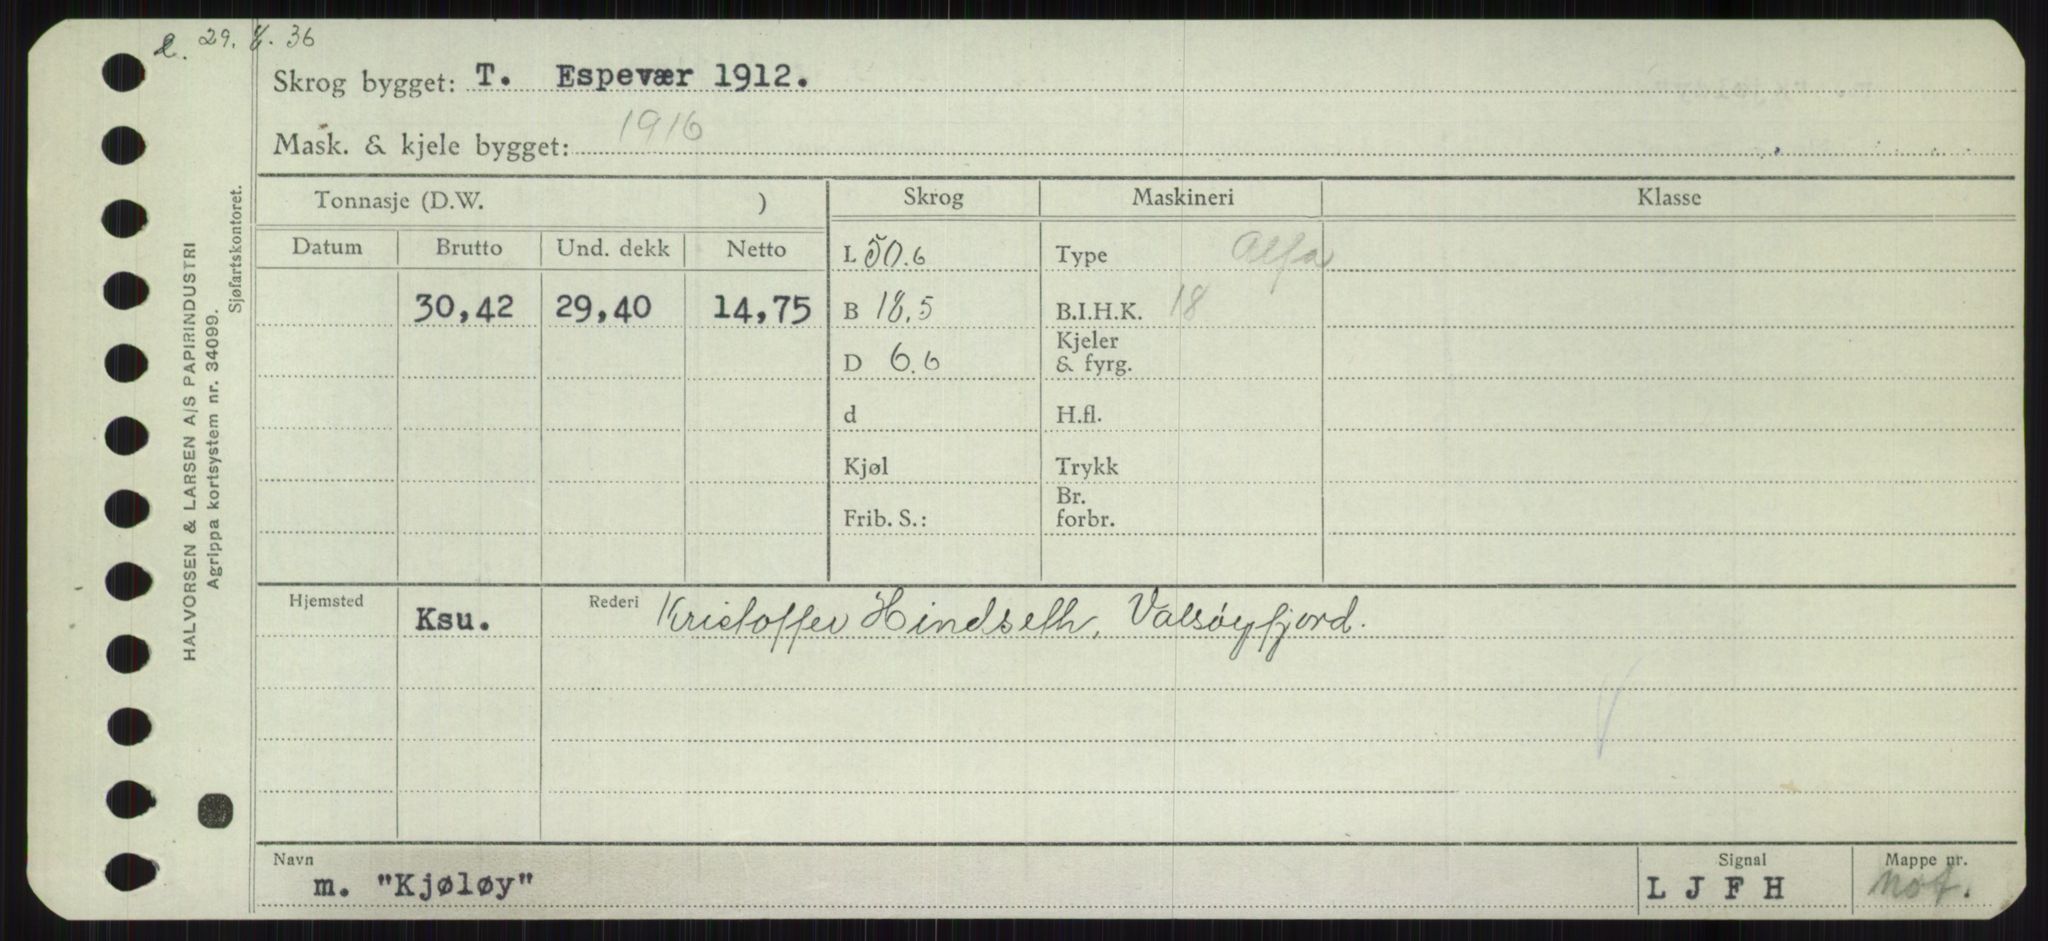 29. 8. 36
Skrog bygget: T. Espevær 1912.
Mask. & kjele bygget: 1916
HALVORSEN & LARSEN A/S PAPIRINDUSTRI
Agrippa kortsystem nr. 34099.
Sjøfartskontoret.
Tonnasje (D.W. ) Skrog Maskineri Klasse
Datum Brutto Und. dekk Netto
L 50.6 Type Alfa
30,42 29,40 14,75 B 18.5 B.I.H.K. 18
D 6.6 Kjeler & fyrg.
d H.fl.
Kjøl Trykk
Frib. S.: Br. forbr.
Hjemsted Ksu. Rederi Kristoffer Hindseth, Valsøyfjord.
Navn Signal Mappe nr.
m. "Kjøløy" L J F H Not.